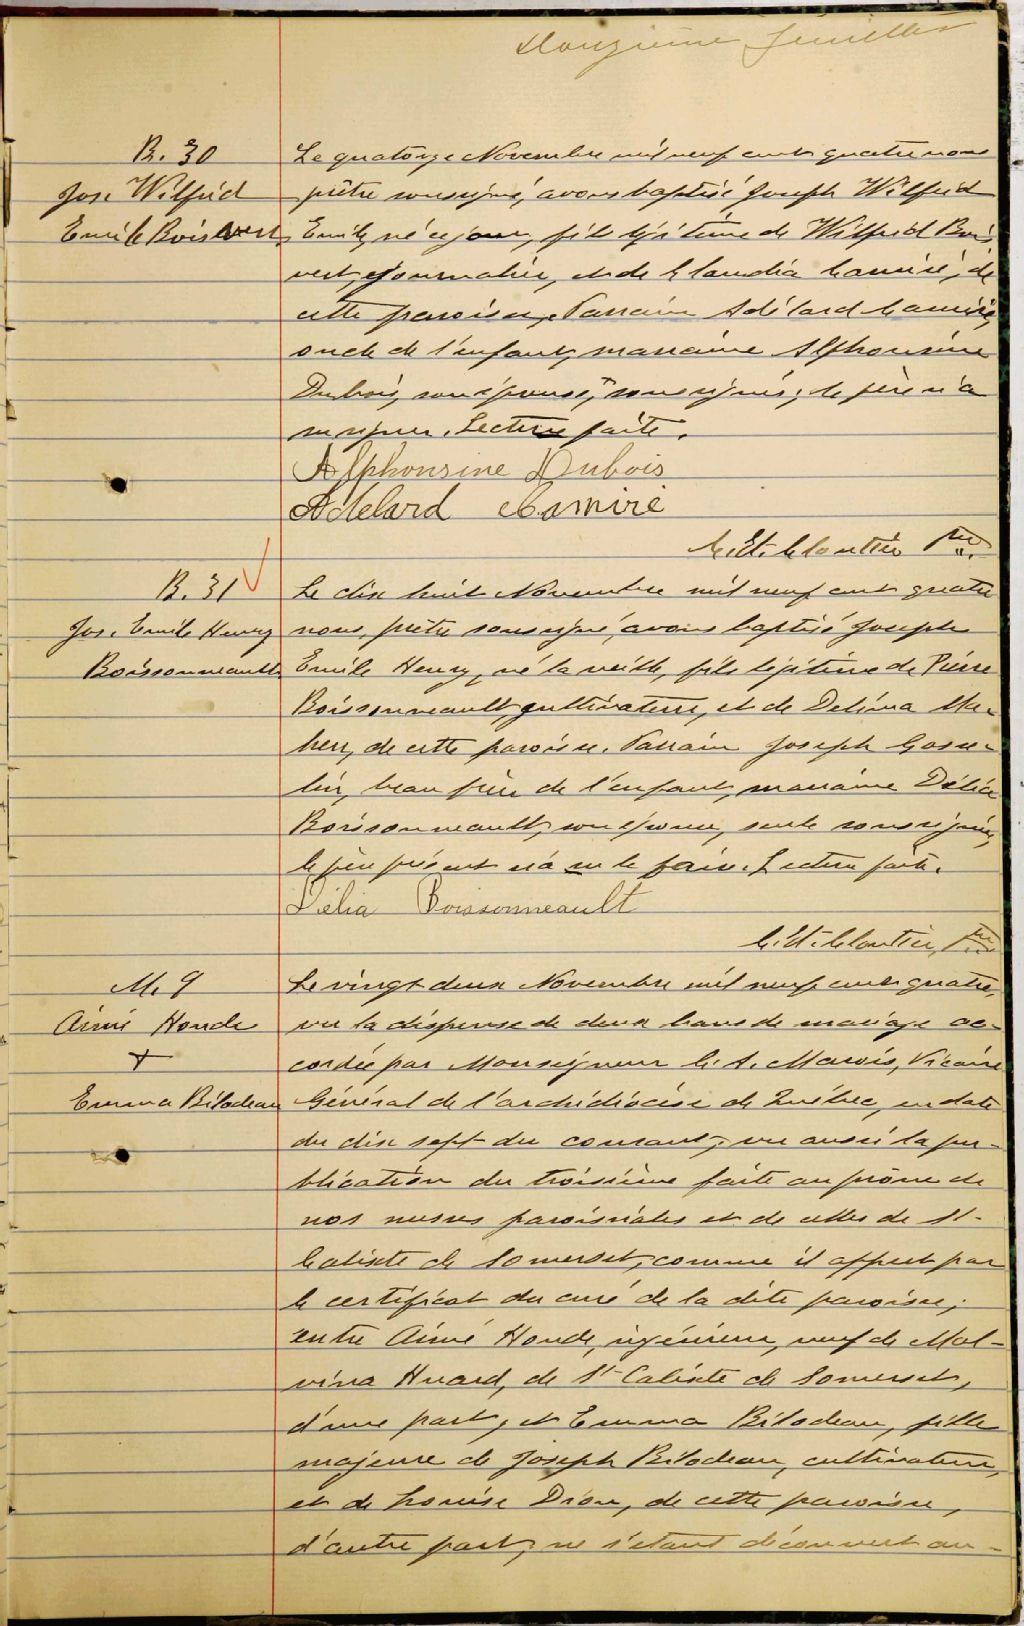 Douzième feuillet
B. 30
Jos. Wilfrid
Emile Boisvert
Le quatorze Novembre mil neuf cent quatre nous
prêtre soussigné, avons baptisé Joseph Wilfrid
Emile, né ce jour, fils légitime de Wilfrid Bois
vert, journalier, et de Claudia Camiré, de
cette paroisse. Parrain Adélard Camiré,
oncle de l'enfant, marraine Alphonsine
Dubois, son épouse, soussignés; le père n'a
su signer. Lecture faite.
Alphonsine Dubois
Adelard Camiré
Cloutier Ptre
B. 31
Jos. Emile Henry
Boissonneault
Le dix huit Novembre mil neuf cent quatre
nous, prêtre soussigné, avons baptisé Joseph
Emile Henry, né la veille, fils légitime de Pierre
Boissonneault, cultivateur, et de Delima
de cette paroisse. Parrain Joseph Gosse-
lin, beau frère de l'enfant, marraine Délia
Boissonneault, son épouse, seule soussignée,
le père présent n'a su le faire. Lecture faite.
Délia Boissonneault
Cloutier, Ptre
M. 9
Aimé Houde
+
Emma Bilodeau
Le vingt deux Novembre mil neuf cent quatre,
vu la dispense de deux bans de mariage ac-
cordée par Monseigneur C. A. Marois, Vicaire
Général de l'archidiocèse de Québec, en date
du dix sept du courant; vu aussi la pu-
blication du troisième faite au prône de
nos messes paroissiales et de celles de St-
Calixte de Somerset, comme il appert par
le certificat du curé de la dite paroisse;
entre Aimé Houde, ingénieur, veuf de Mal-
vina Huard, de St-Calixte de Somerset,
d'une part, et Emma Bilodeau, fille
majeure de Joseph Bilodeau, cultivateur,
et de Louise Dion, de cette paroisse,
d'autre part; ne s'étant découvert au-